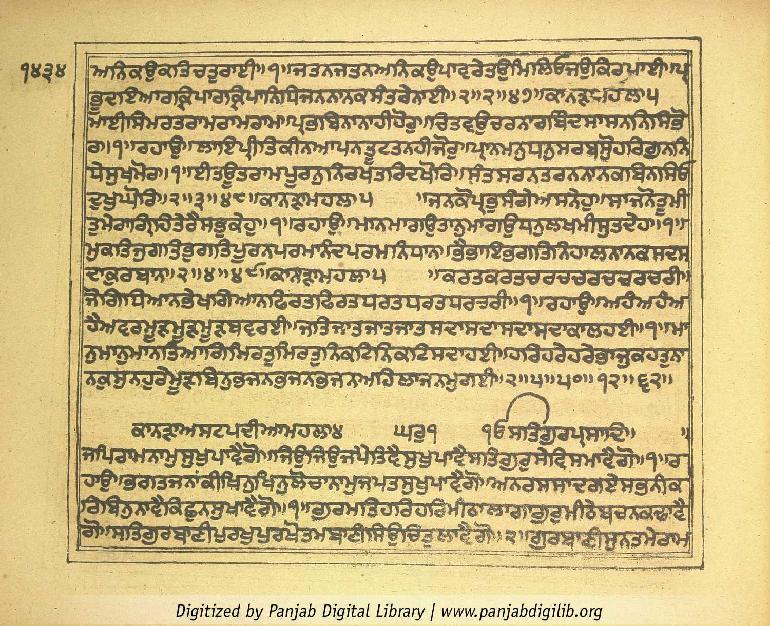 ੧੪੩੪
ਅਨਿਕਉਕਤਿਚਤੁਰਾਈ॥੧॥ਜਤਨਜਤਨਅਨਿਕਉਪਾਵਰੇਤਉਮਿਲਿਓਜਉਕਿਰਪਾਈ॥ਪ੍ਰ
ਭੂਦਇਆਰਕ੍ਰਿਪਾਰਕ੍ਰਿਪਾਨਿਧਿਜਨਨਾਨਕਸੰਤਰੇਨਾਈ॥੨॥੨॥੪੭॥ਕਾਨੜਾਮਹਲਾ੫
ਮਾਈਸਿਮਰਤਰਾਮਰਾਮਰਾਮ॥ਪ੍ਰਭਬਿਨਾਨਾਹੀਹੋਰੁ॥ਚਿਤਵਉਚਰਨਾਰਬਿੰਦਸਾਸਨਨਿਸਿਭੋ
ਰ॥੧॥ਰਹਾਉ॥ਲਾਇਪ੍ਰੀਤਿਕੀਨਆਪਨਤੂਟਤਨਹੀਜੋਰੁ॥ਪ੍ਰਾਨਮਨੁਧਨੁਸਰਬਸੋਹਰਿਗੁਨਨਿ
ਧੇਸੁਖਮੋਰ॥੧॥ਈਤਊਤਰਾਮਪੂਰਨੁਨਿਰਖਤਰਿਦਖੋਰਿ॥ਸੰਤਸਰਨਤਰਨਨਾਨਕਬਿਨਸਿਓ
ਦੁਖੁਘੋਰਿ॥੨॥੩॥੪੮॥ਕਾਨੜਾਮਹਲਾ੫ ॥ਜਨਕੋਪ੍ਰਭੁਸੰਗੇਅਸਨੇਹੁ॥ਸਾਜਨੋਤੂਮੀ
ਤੁਮੇਰਾਗ੍ਰਿਹਿਤੇਰੈਸਭੁਕੇਹੁ॥੧॥ਰਹਾਉ॥ਮਾਨਮਾਗਉਤਾਨੁਮਾਗਉਧਨੁਲਖਮੀਸੁਤਦੇਹ॥੧॥
ਮੁਕਤਿਜੁਗਤਿਭੁਗਤਿਪੂਰਨਪਰਮਾਨੰਦਪਰਮਨਿਧਾਨ॥ਭੈਭਾਇਭਗਤਿਨਿਹਾਲਨਾਨਕਸਦਸ
ਦਾਕੁਰਬਾਨ॥੨॥੪॥੪੯॥ਕਾਨੜਾਮਹਲਾ੫ ॥ਕਰਤਕਰਤਚਰਚਚਰਚਚਰਚਰੀ॥
ਜੋਗਧਿਆਨਭੇਖਗਿਆਨਫਿਰਤਫਿਰਤਧਰਤਧਰਤਧਰਚਰੀ॥੧॥ਰਹਾਉ॥ਅਹੰਅਹੰਅ
ਹੈਅਵਰਮੂੜਮੂੜਮੂੜਬਵਰਈ॥ਜਤਿਜਾਤਜਾਤਜਾਤਸਦਾਸਦਾਸਦਾਸਦਾਕਾਲਹਈ॥੧॥ਮਾ
ਨੁਮਾਨੁਮਾਨਤਿਆਗਿਮਿਰਤੁਮਿਰਤੁਨਿਕਟਿਨਿਕਟਿਸਦਾਹਈ॥ਹਰਿਹਰੇਹਰੇਭਾਜੁਕਹਤੁਨਾ
ਨਕੁਸੁਨਹੁਰੇਮੂੜਬਿਨੁਭਜਨਭਜਨਭਜਨਅਹਿਲਾਜਨਮੁਗਈ॥੨॥੫॥੫੦॥੧੨॥੬੨॥
ਕਾਨੜਾਅਸਟਪਦੀਆਮਹਲਾ੪ ਘਰੁ੧ ੴਸਤਿਗੁਰਪ੍ਰਸਾਦਿ॥ ॥
ਜਪਿਰਾਮਨਾਮੁਸੁਖੁਪਾਵੈਗੋ॥ਜਿਉਜਿਉਜਪੈਤਿਵੈਸੁਖੁਪਾਵੈਸਤਿਗੁਰੁਸੇਵਿਸਮਾਵੈਗੋ॥੧॥ਰ
ਹਾਉ॥ਭਗਤਜਨਾਂਕੀਖਿਨੁਖਿਨੁਲੋਚਾਨਾਮੁਜਪਤਸੁਖੁਪਾਵੈਗੋ॥ਅਨਰਸਸਾਦਗਏਸਭਨੀਕ
ਰਿਬਿਨੁਨਾਵੈਕਿਛੁਨਸੁਖਾਵੈਗੋ॥੧॥ਗੁਰਮਤਿਹਰਿਹਰਿਮੀਠਾਲਾਗਾਗੁਰੁਮੀਠੇਬਚਨਕਢਾਵੈ
ਗੋ॥ਸਤਿਗੁਰਬਾਣੀਪੁਰਖੁਪੁਰਖੋਤਮਬਾਣੀਸਿਉਚਿਤੁਲਾਵੈਗੋ॥੨॥ਗੁਰਬਾਣੀਸੁਨਤਮੇਰਾਮ
Digitized by Panjab Digital Library | www.panjabdigilib.org